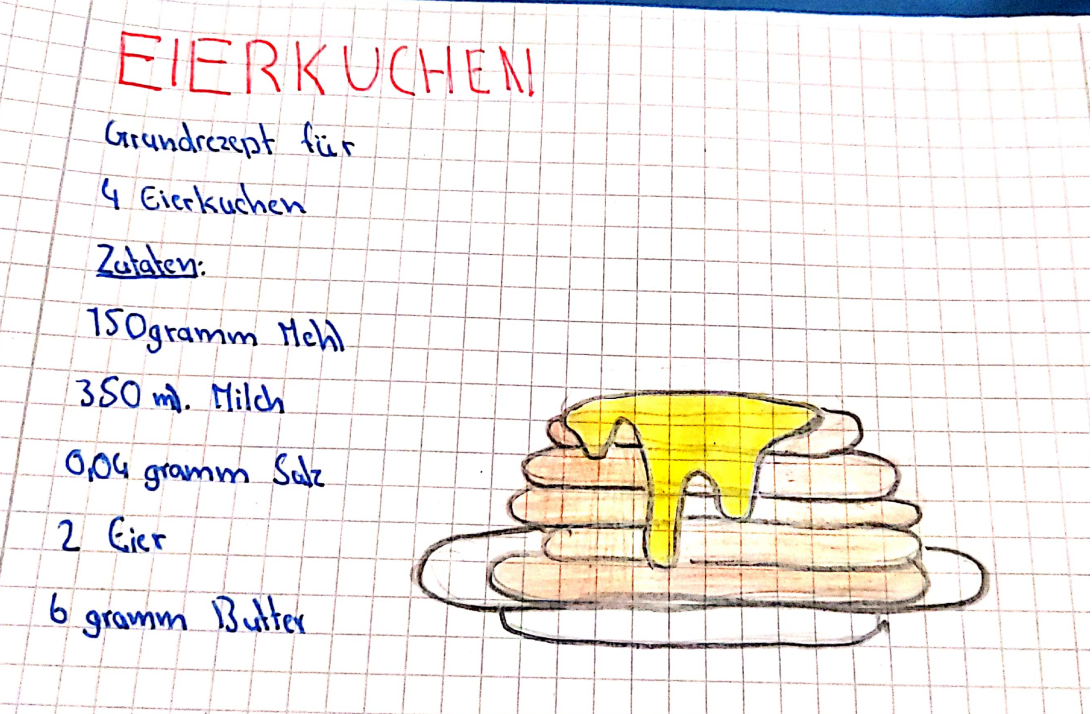 EIERKUCHEN
Grundrezept für
4 Eierkuchen
Zutaten:
150gramm Mehl
350 ml. Milch
0,04 gramm Salz
2 Eier
6 gramm Butter